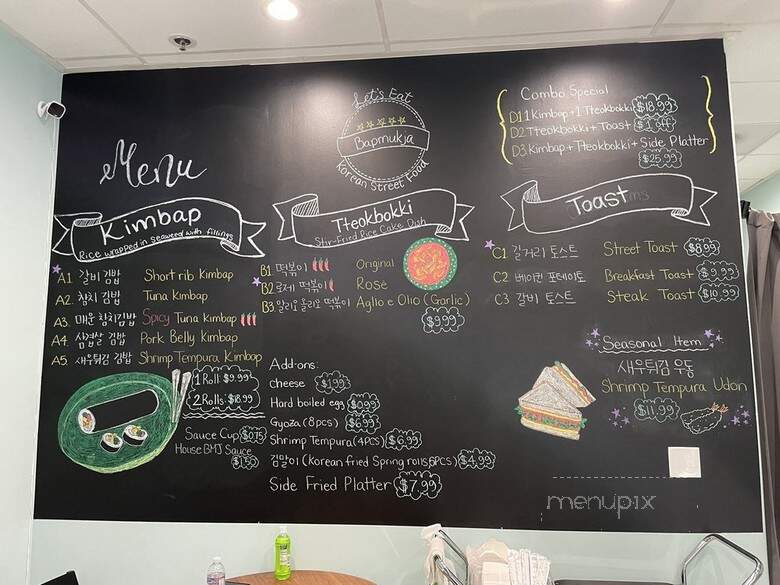 Menu
Let's Eat
Bapmukja
Korean Street Food
Combo Special
D1. 1 Kimbap + 1 Tteokbokki $18.99
D2. Tteokbokki + Toast
D3. Kimbap + Tteokbokki + Side Platter
$25.99
Kimbap
Rice wrapped in seaweed with fillings
A1. 갈비 김밥 Short rib Kimbap
A2. 참치 김밥 Tuna Kimbap
A3. 매운 참치김밥 Spicy Tuna Kimbap
A4. 삼겹살 김밥 Pork Belly Kimbap
A5. 새우튀김 김밥 Shrimp Tempura Kimbap
1 Roll: $9.99
2 Rolls: $18.99
Sauce Cup $0.75
House BMJ Sauce
$1.50
Tteokbokki
Stir-Fried Rice Cake Dish
B1. 떡볶이 Original
B2. 로제 떡볶이 Rose
B3. 알리오 올리오 떡볶이 Aglio e Olio (Garlic)
$9.99
Add-ons:
Cheese $1.99
Hard boiled egg $0.99
Gyoza (8pcs) $6.99
Shrimp Tempura (4PCS) $6.99
김말이 (Korean fried Spring rolls, 5PCS) $4.99
Side Fried Platter $7.99
Toast
C1 길거리 토스트 Street Toast $8.99
C2 베이컨 포테이토 Breakfast Toast $9.99
C3 갈비 토스트 Steak Toast $10.99
Seasonal Item
새우튀김 우동
Shrimp Tempura Udon
$11.99
menupix